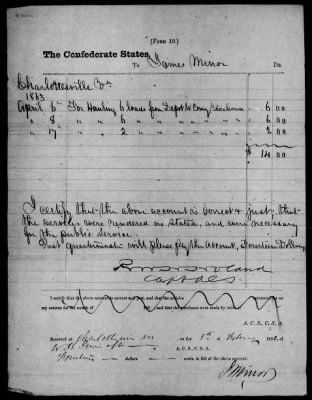 (Form 19.)
The Confederate States,
To James Minor Dr.
Charlottesville Va
1863
April 6th For Hauling 6 loads from Depot to 6.00
" 8 " " 6 " " " " " 6.00
" 17 " " 2 " " " " " 2.00
$ 14.00
I certify that the above account is correct & just; that
the services were rendered as stated, and were necessary
for the public service.
Post Quartermaster will please pay the account, Fourteen Dollars,
Capt
I certify that the above account is correct and just, and that the articles
my the month of and that the purchases were made by order
A. C. S., C. S. A.
Received at on the 5th of 186
A. C. S., C. S. A.
Fourteen dollars cents, in full of the above account.
J Minor